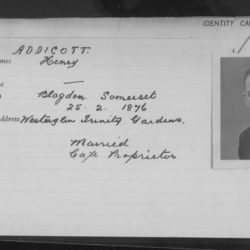 IDENTITY CA
ADDICOTT.
mes Henry
—
Blagdon Somerset
25. 2. 1876
Address Westerglen Trinity Gardens.
Married
Cafe Proprietor